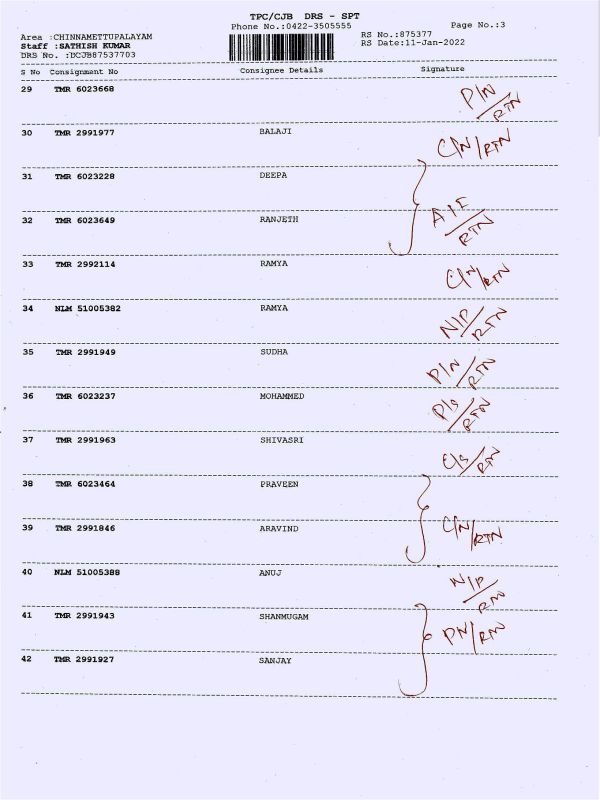 TPC/CJB DRS - SPT
Phone No.:0422-3505555
Page No.:3
Area :CHINNAMETTUPALAYAM
RS No.:875377
Staff :SATHISH KUMAR
RS Date:11-Jan-2022
DRS No. :DCJB87537703
S No Consignment No Consignee Details Signature
29 TMR 6023668 P/N/RTN
30 TMR 2991977 BALAJI C/N/RTN
31 TMR 6023228 DEEPA
32 TMR 6023649 RANJETH RTN
33 TMR 2992114 RAMYA C/N/RTN
34 NLM 51005382 RAMYA N/P/RTN
35 TMR 2991949 SUDHA P/N/RTN
36 TMR 6023237 MOHAMMED P/S/RTN
37 TMR 2991963 SHIVASRI C/S/RTN
38 TMR 6023464 PRAVEEN
39 TMR 2991846 ARAVIND C/N/RTN
40 NLM 51005388 ANUJ N/P/RTN
41 TMR 2991943 SHANMUGAM PN/RTN
42 TMR 2991927 SANJAY